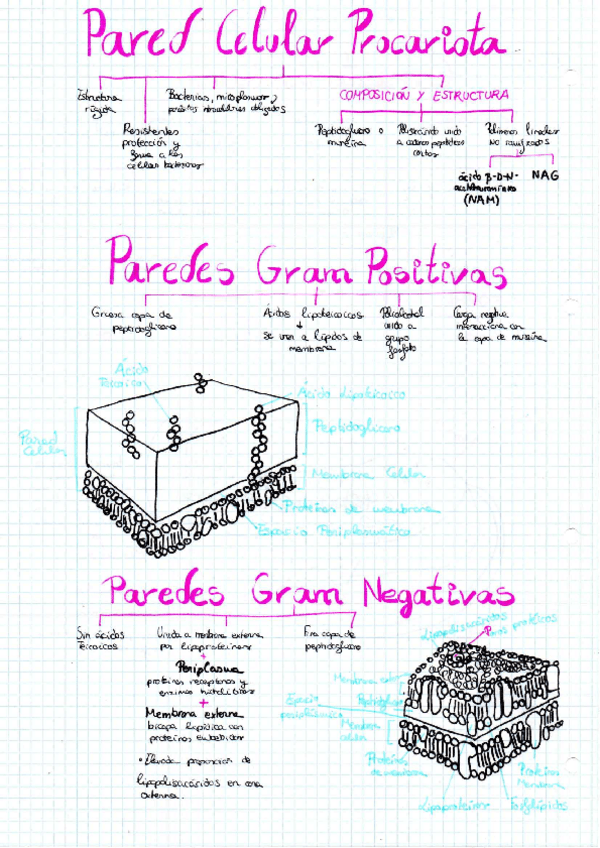 Pared Celular Procariota
Estructura rígida
Resistentes
protección y
forma a las
células bacterianas
Bacterias,
COMPOSICIÓN Y ESTRUCTURA
Peptidoglicano o
mureína
Polisacárido unido
a cadenas peptídicas
cortas
Polímeros lineales
no ramificados
ácido β-D-N-
(NAM)
NAG
Paredes Gram Positivas
Gruesa capa de
peptidoglicano
Ácidos lipoteicoicos
+
se unen a lípidos de
membrana
unido a
grupo
fosfato
Carga negativa
interacciona con
la capa de mureína
Ácido
Teicoico
Ácido Lipoteicoico
Pared
Celular
Peptidoglicano
Membrana Celular
Proteínas de membrana
Espacio Periplasmático
Paredes Gram Negativas
Sin ácidos
teicoicos
Unida a membrana externa
por lipoproteínas
Fina capa de
peptidoglicano
+
Periplasma
proteínas receptoras y
enzimas hidrolíticas
+
Membrana externa
bicapa lipídica con
proteínas embebidas
• Elevada presencia de
lipopolisacáridos en cara
externa.
Lipopolisacáridos
Membrana
Peptidoglicano
Espacio
periplasmático
Membrana
celular
Proteínas
de membrana
Proteínas
Membrana
Lipoproteínas
Fosfolípidos